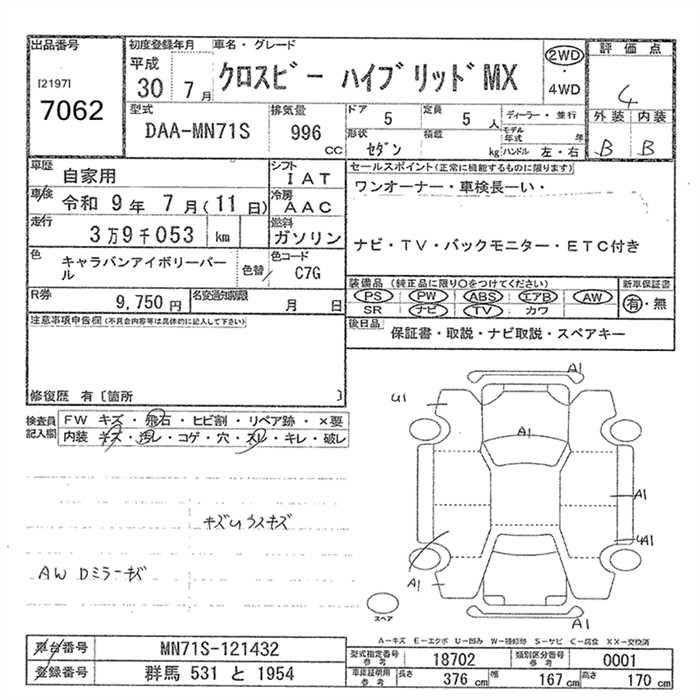 出品番号
[2197]
7062
初度登録年月
平成
30 7月
車名・グレード
クロスビー ハイブリッドMX
2WD
・
4WD
評価点
4
外装 内装
B B
型式
DAA-MN71S
排気量
996
cc
ドア 5
定員 5 人
ディーラー・並行
モデル年式 年
形状 セダン
積載 kg
ハンドル 左・右
車歴 自家用
シフト IAT
車検 令和 9年 7月(11日)
冷房 AAC
走行 3万9千053 km
燃料 ガソリン
色 キャラバンアイボリーパール
色替
色コード C7G
R券 9,750円
名変通知期限 月 日
セールスポイント(正常に機能するものに限ります)
ワンオーナー・車検長ーい・
ナビ・TV・バックモニター・ETC付き
装備品(純正品に限り○をつけてください)
PS PW ABS エアB AW
SR ナビ TV カワ
新車保証書
有・無
後日品
保証書・取説・ナビ取説・スペアキー
注意事項申告欄(不具合内容等は具体的に記入して下さい)
修復歴 有〔箇所 〕
検査員記入欄
FW キズ・飛石・ヒビ割・リペア跡・×要
内装 キズ・汚レ・コゲ・穴・スレ・キレ・破レ
キズUウスキズ
AW Dミラーキズ
A1
U1
A1
A1
UA1
A1
A1
スペア
A−キズ E−エクボ U−凹み W−補修跡 S−サビ C−腐食 XX−交換済
車台番号 MN71S-121432
登録番号 群馬 531 と 1954
型式指定番号 参考 18702
類別区分番号 参考 0001
車庫証明用 参考 長さ 376 cm 幅 167 cm 高さ 170 cm